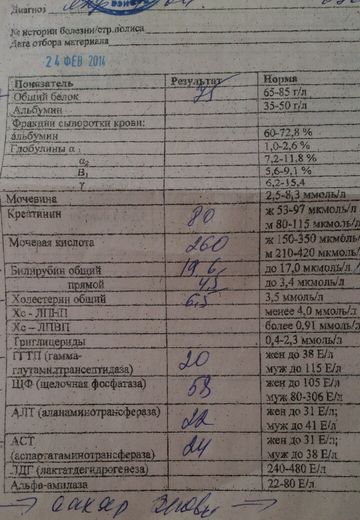 Диагноз
№ истории болезни/стр.полиса
Дата отбора материала
24 ФЕВ 2014
Показатель Результат Норма
Общий белок 75 65-85 г/л
Альбумин 35-50 г/л
Фракции сыворотки крови:
альбумин 60-72,8 %
Глобулины α 1 1,0-2,6 %
α2 7,2-11,8 %
В1 5,6-9,1 %
γ 6,2-15,4
Мочевина 2,5-8,3 ммоль/л
Креатинин 80 ж 53-97 мкмоль/л
м 80-115 мкмоль/л
Мочевая кислота 260 ж 150-350 мкмоль/л
м 210-420 мкмоль/л
Билирубин общий 19,6 до 17,0 мкмоль/л
прямой 4,5 до 3,4 мкмоль/л
Холестерин общий 6,5 3,5 ммоль/л
Хс - ЛПНП менее 4,0 ммоль/л
Хс – ЛПВП более 0,91 ммоль/л
Триглицериды 0,4-2,3 ммоль/л
ГГТП (гамма- 20 жен до 38 Е/л
глутамилтранспептидаза) муж до 115 Е/л
ЩФ (щелочная фосфатаза) 53 жен до 105 Е/л
муж 80-306 Е/л
АЛТ (аланаминотрансфераза) 22 жен до 31 Е/л;
муж до 41 Е/л
АСТ 24 жен до 31 Е/л;
(аспартатаминотрансфераза) муж до 38 Е/л
ЛДГ (лактатдегидрогеназа) 240-480 Е/л
Альфа-амилаза 22-80 Е/л
→ сахар крови →